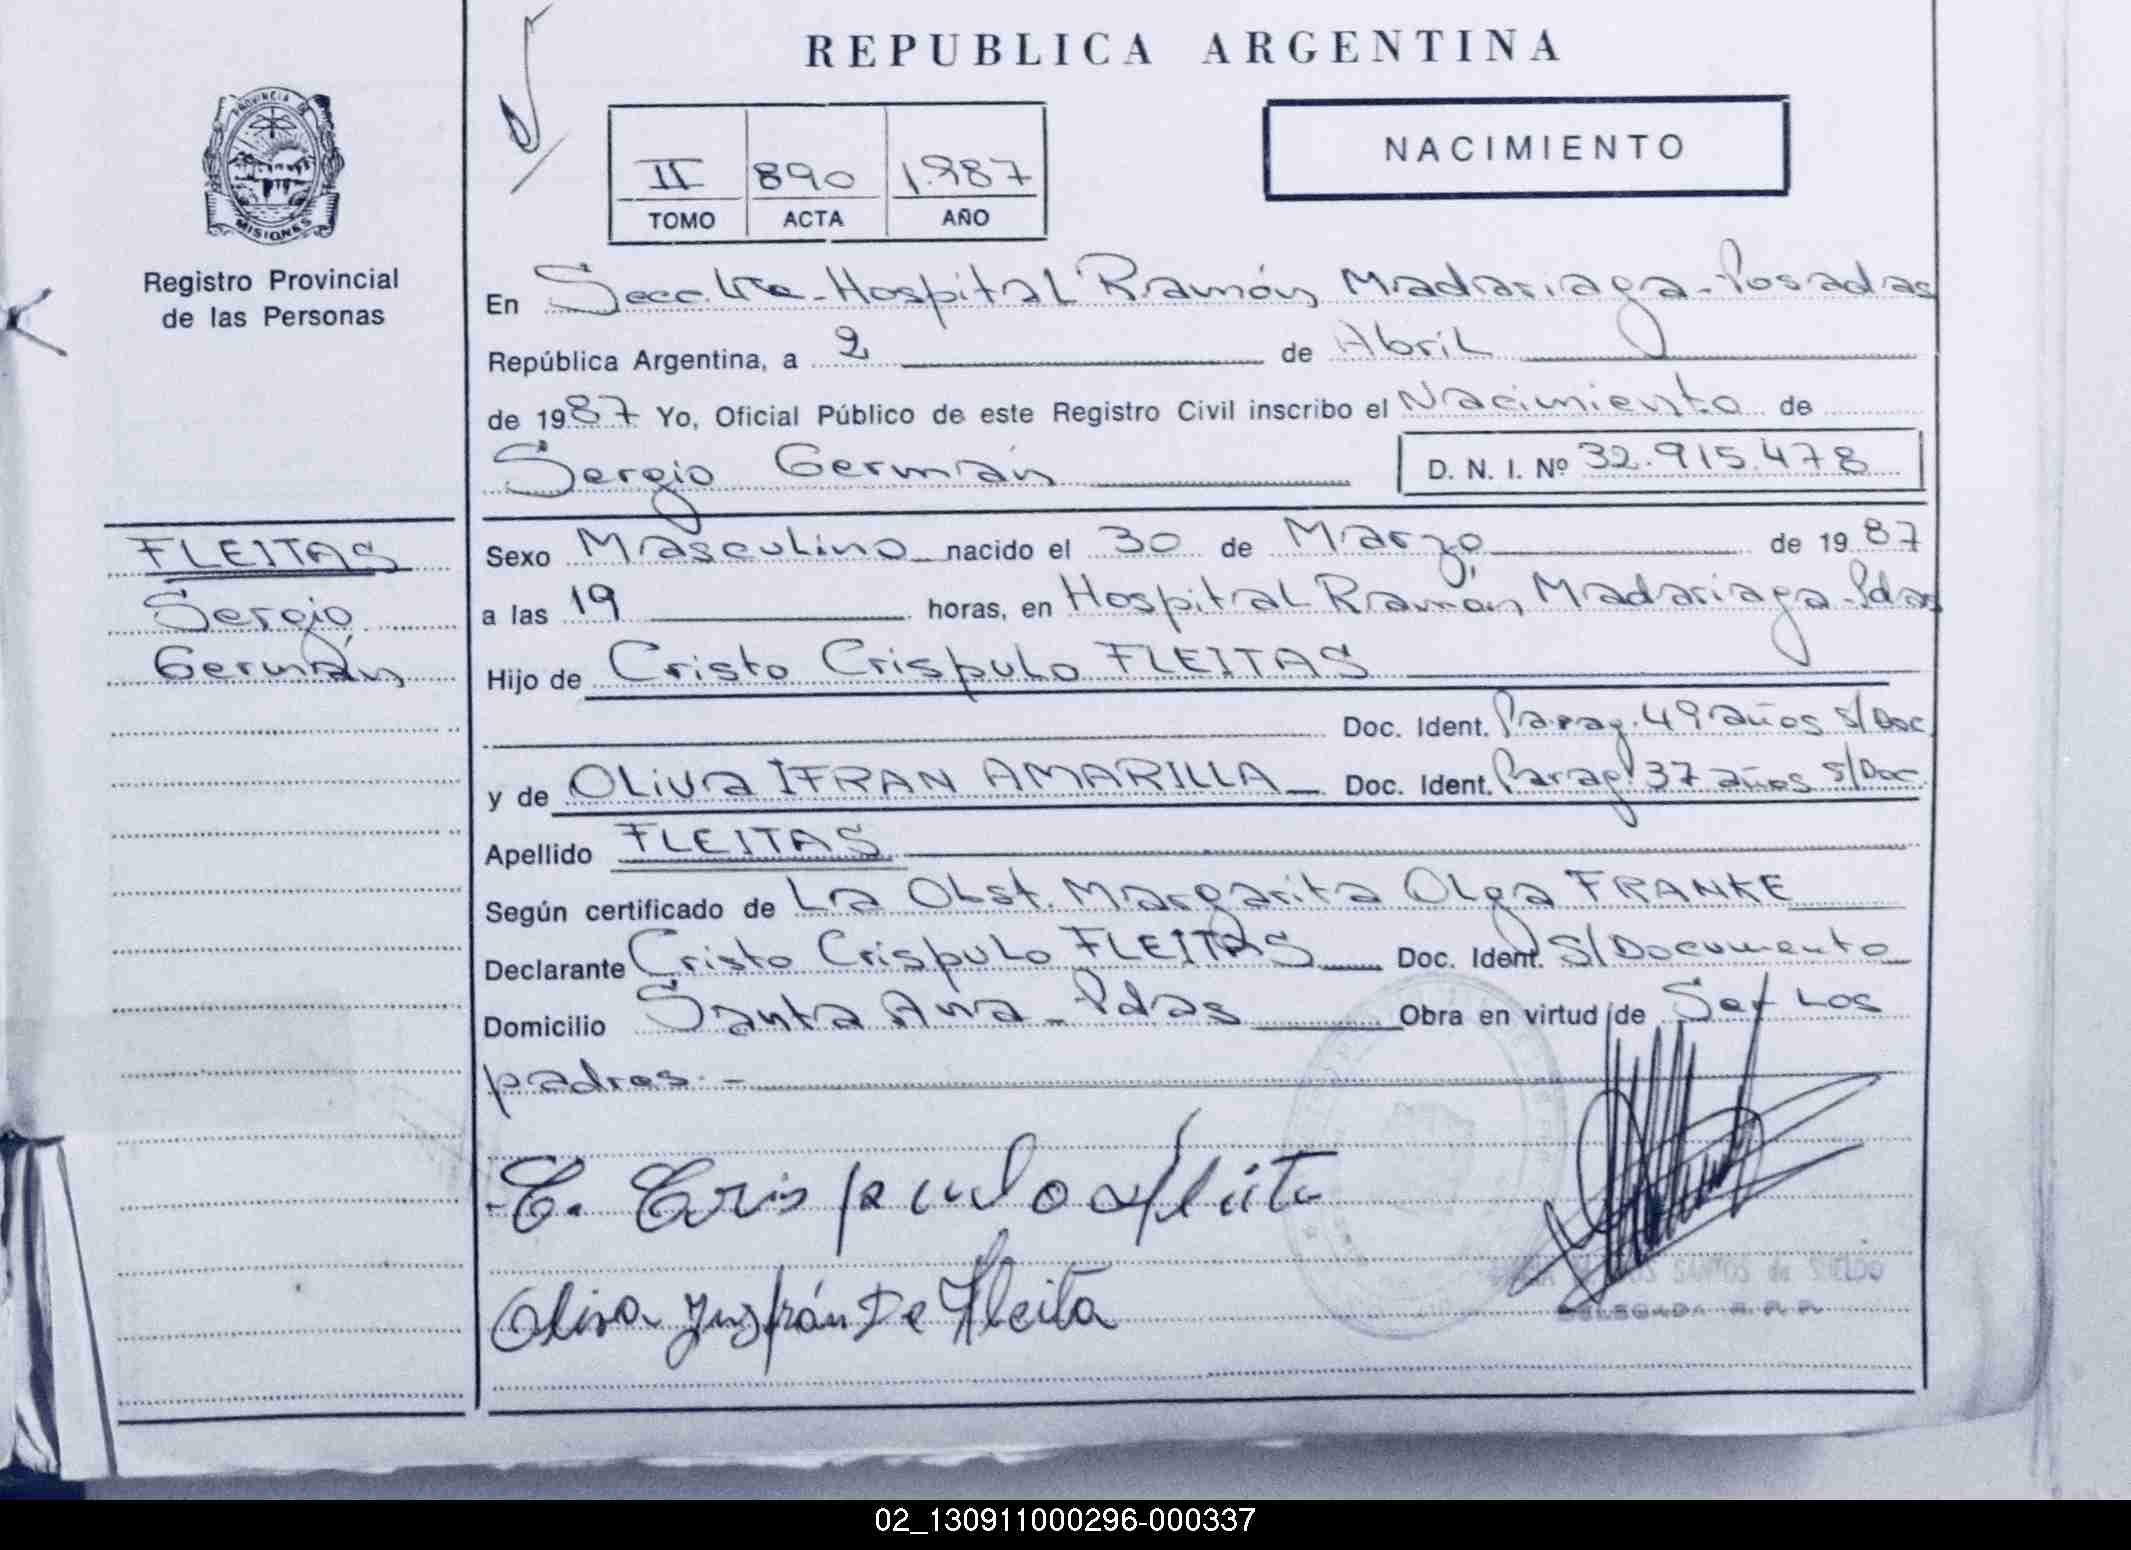 REPUBLICA ARGENTINA
NACIMIENTO
II 890 1.987
TOMO ACTA AÑO
PROVINCIA DE
MISIONES
Registro Provincial
de las Personas
En Secc. Hospital Ramón Madariaga - Posadas
República Argentina, a 2 de Abril
de 1987 Yo, Oficial Público de este Registro Civil inscribo el Nacimiento de
Sergio Germán D. N. I. Nº 32.915.478
FLEITAS
Sergio
Germán
Sexo Masculino nacido el 30 de Marzo de 1987
a las 19 horas, en Hospital Ramón Madariaga - Pdas
Hijo de Cristo Crispulo FLEITAS
Doc. Ident. Parag. 49 años s/Doc
y de OLiva IFRAN AMARILLA Doc. Ident. Parag. 37 años s/Doc.
Apellido FLEITAS
Según certificado de La Obst. Margarita Olga FRANKE
Declarante Cristo Crispulo FLEITAS Doc. Ident. S/Documento
Domicilio Santa Ana - Pdas Obra en virtud de Ser Los
padres.-
C. Crispulo Fleita
Oliva De Fleita
SANTOS de
DELEGADA R. P. P.
02_130911000296-000337